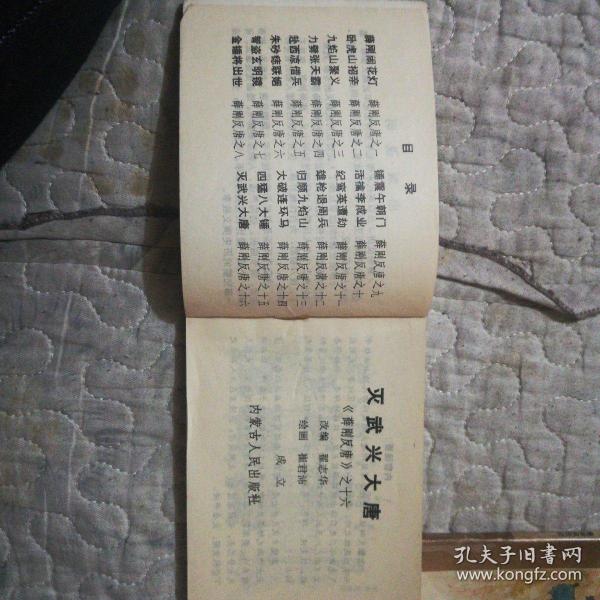 目录
薛刚闹花灯 薛刚反唐之一
卧虎山招亲 薛刚反唐之二
九焰山聚义 薛刚反唐之三
力劈张天霸 薛刚反唐之四
赴西凉借兵 薛刚反唐之五
朱砂痣联姻 薛刚反唐之六
智盗玄明镜 薛刚反唐之七
金锤将出世 薛刚反唐之八
锤震午朝门 薛刚反唐之九
活擒李成业 薛刚反唐之十
纪鸾英遭劫 薛刚反唐之十一
雄枪退周兵 薛刚反唐之十二
归顺九焰山 薛刚反唐之十三
大破连环马 薛刚反唐之十四
四猛八大锤 薛刚反唐之十五
灭武兴大唐 薛刚反唐之十六
灭武兴大唐
《薛刚反唐》之十六
改编 翟志华
绘画 崔君沛
成立
内蒙古人民出版社
孔夫子旧书网
www.kongfz.com